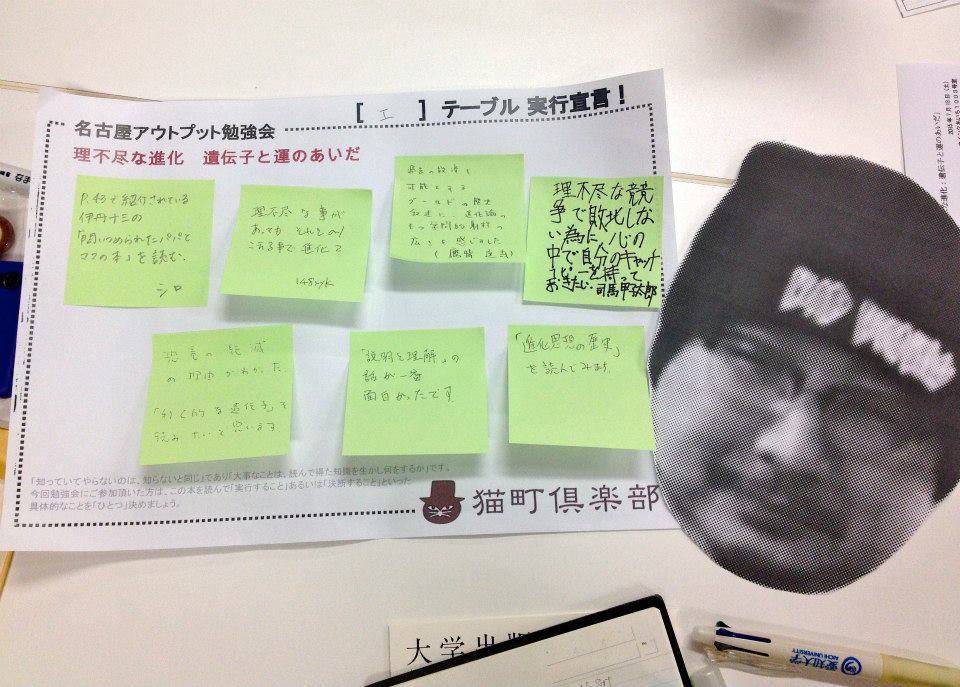 [ エ ] テーブル 実行宣言！
名古屋アウトプット勉強会
理不尽な進化　遺伝子と運のあいだ
P.43で紹介されている
伊丹十三の
「問いつめられたパパと
ママの本」を読む.
シロ
理不尽な事が
あっても それをのり
こえる事で進化で
過去の敗者を
可能とする
グールドの歴史
広さを感じました
理不尽な競
争で敗北しな
い為に、心の
中で自分のキャット
を持って
おきたい. 司馬甲弥郎
恐竜の絶滅
の理由がわかった.
「利己的な遺伝子」を
読みたいと思います
「説明と理解」の
話が一番
面白かったです
「進化思想の歴史」
を読んでみます.
「知っていてやらないのは、知らないと同じ」であり「大事なことは、読んで得た知識を生かし何をするか」です。
今回勉強会にご参加頂いた方は、この本を読んで「実行すること」あるいは「決断すること」といった
具体的なことを「ひとつ」決めましょう。
猫町倶楽部
大学出版
愛知大学
AICHI UNIVERSITY